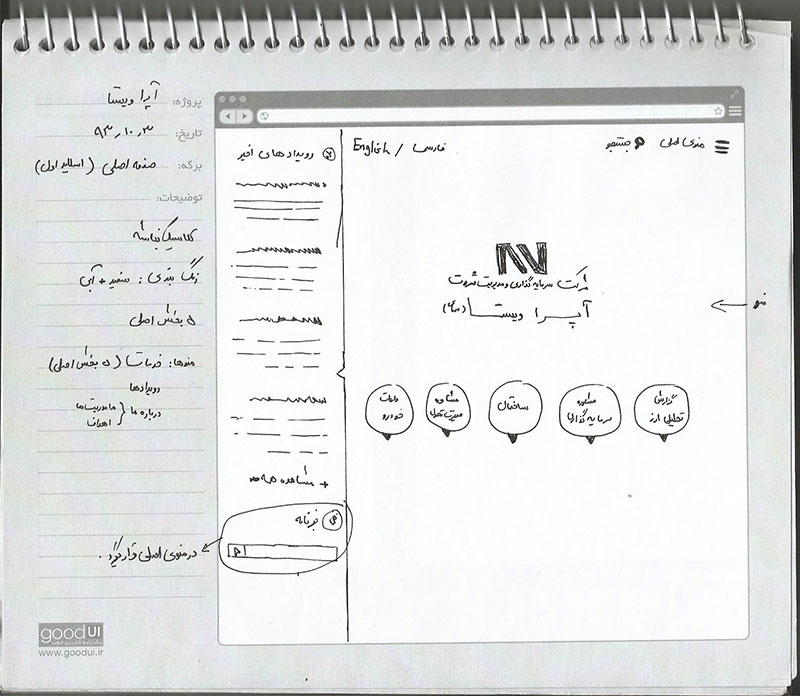 پروژه: آپرا ویستا
تاریخ: ۹۳٫۱۰٫۳
برگه: صفحه اصلی (اسلاید اول)
توضیحات:
کلاسیک نباشه
رنگ بندی: سفید + آبی
۵ بخش اصلی
منوها: خدمات (۵ بخش اصلی)
رویدادها
درباره ما { ماموریت‌ها
اهداف
در منوی اصلی قرار گیرد.
goodUI
www.goodui.ir
منوی اصلی
جستجو
فارسی / English
رویدادهای اخیر
شرکت سرمایه گذاری و مدیریت ثروت
آپرا ویستا
منو
گزارش
تحلیل ارز
مشاوره
سرمایه گذاری
ساختمان
مشاوره
خدمات
خودرو
+ مشاهده همه
خبرنامه